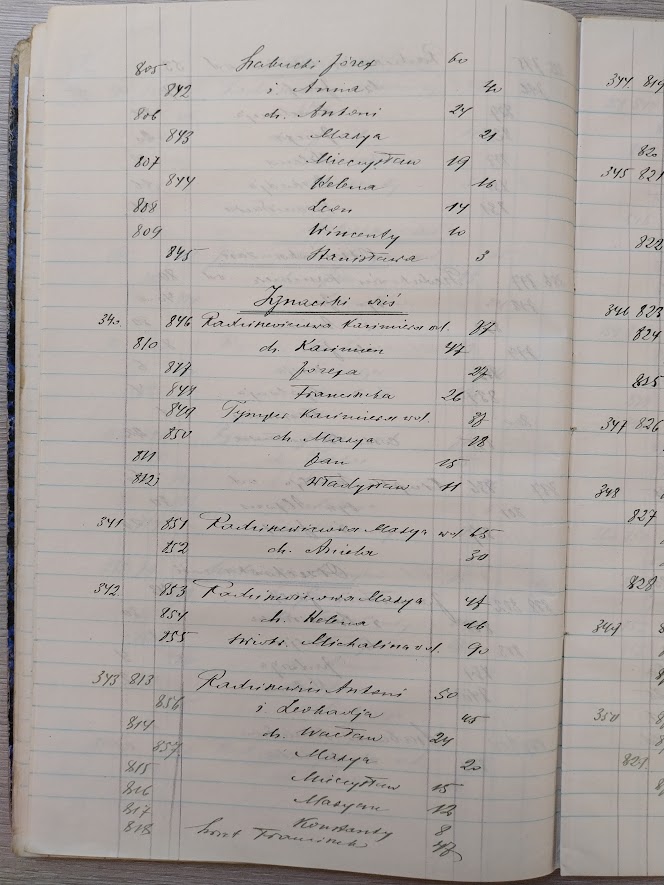 805 Józef 60
842 i Anna 40
806 dz. Antoni 24
843 Marya 21
807 Mieczysław 19
844 Helena 16
808 Leon 14
809 Wincenty 10
845 Stanisława 3
Ignacihi wieś
340. 846 Radziniewiczowa Kazimiera wd.
810 dz. Kazimierz 47
847 Józefa 27
848 Franciszka 26
849 Kazimiera wd.
850 dz. Marya 18
811 Jan 15
812 Władysław 11
341 851 Marya wd 65
852 dz. Aniela 30
342 853 Marya
854 dz. Helena 16
855 siostr. Michalina wd. 90
343 813 Antoni 50
856 i Leokadja 45
814 dz. Wacław 24
857. Marya 20
815 Mieczysław 15
816 Maryan 12
817 Konstanty 8
818 Franciszek
344. 819
820
345 821
822
346 823
824
825
347 826
348
827
828
349
350
829.